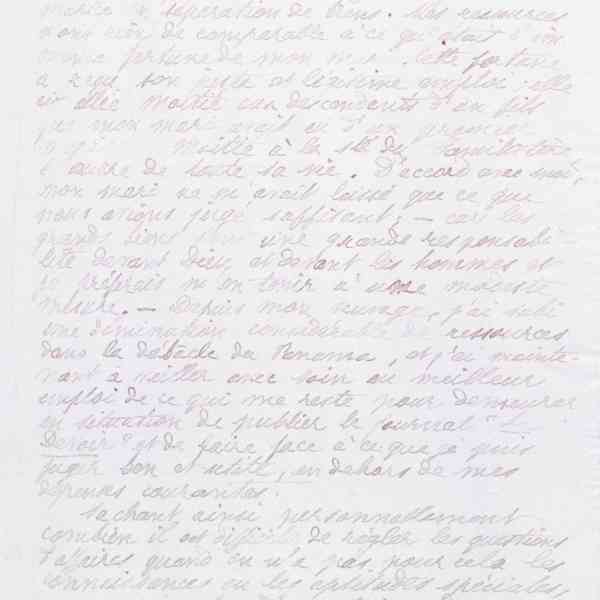 mariée en séparation de biens. Mes ressources
n'ont rien de comparable à ce qu'était l'im-
mense fortune de mon mari. Cette fortune
a reçu son juste et légitime emploi; elle
est allée moitié aux descendants d'un fils
que mon mari avait eu d'un premier
moitié à la Sté du Familistère
l'œuvre de toute sa vie. D'accord avec moi,
mon mari ne m'avait laissé que ce que
nous avions jugé suffisant; — car les
grands biens sont une grande responsabi-
lité devant Dieu et devant les hommes et
je préférais m'en tenir à une modeste
mesure. — Depuis mon veuvage, j'ai subi
une diminution considérable de ressources
dans la débâcle du Panama, et j'ai mainte-
nant à veiller avec soin au meilleur
emploi de ce qui me reste pour demeurer
en situation de publier le journal "Le
Devoir" et de faire face à ce que je puis
juger bon et utile, en dehors de mes
dépenses courantes.
Sachant ainsi personnellement
combien il est difficile de régler les questions
d'affaires quand on n'a pas pour cela les
connaissances ou les aptitudes spéciales,